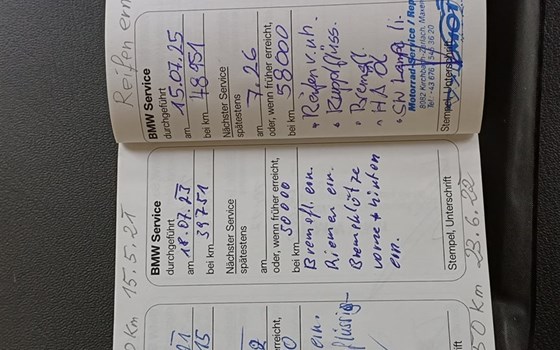 Reifen ern
BMW Service
durchgeführt
am 15.07.25
bei km 48951
Nächster Service
spätestens
am 7.26
oder, wenn früher erreicht,
bei km 58000
• Reifen v.u.h.
• Kuppl.flüss.
• Bremsfl.
• HA Öl
Motorrad-Service / Rep
Stempel, Unterschrift
BMW Service
durchgeführt
am 18.07.23
bei km 39751
Nächster Service
spätestens
am
oder, wenn früher erreicht,
bei km 50000
Bremsfl. ern.
Riemen ern.
Bremsklötze
vorne + hinten
ern.
Stempel, Unterschrift
0 km 15.5.21
50 km 23.6.22
21
15
erreicht,
0
ern.
flüssig